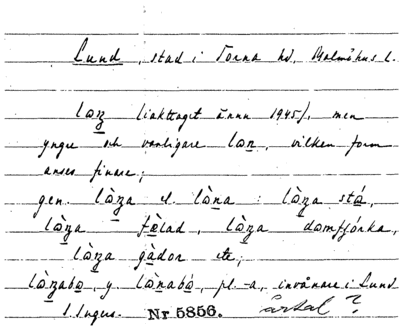 Lund, stad i Torna hd, Malmöhus l.
loȥ iakttaget ännu 1945/, men
yngre och vanligare lon, vilken form
anses finare;
gen. lòȥa el. lòna : lòȥa stá,
lòȥa fælad, lòȥa domfjórka,
lòȥa gàdor etc;
lòȥabo, y. lònabó, pl. -a, invånare i Lund
I. Ingers. Nr 5856. årtal ?